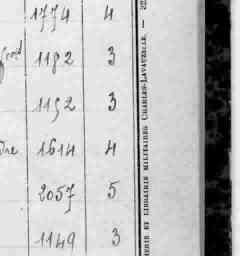 1774 4
1182 3
1152 3
1614 4
2057 5
1149 3
ET LIBRAIRIE MILITAIRES CHARLES-LAVAUZELLE. —